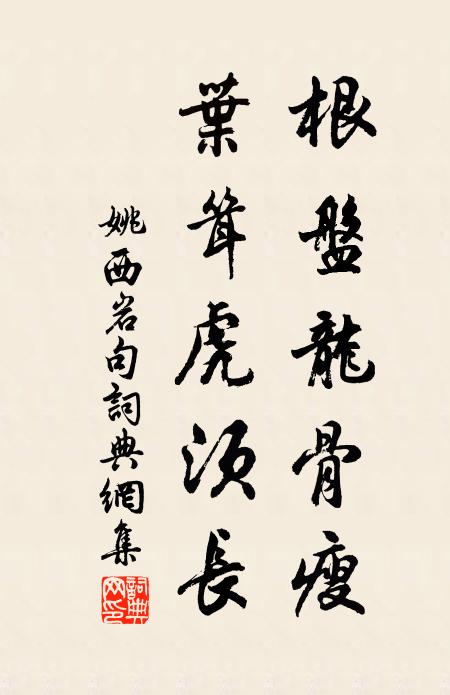 根盤龍骨瘦
葉耸虎須長
姚西岩句詞典網集
詞典网印